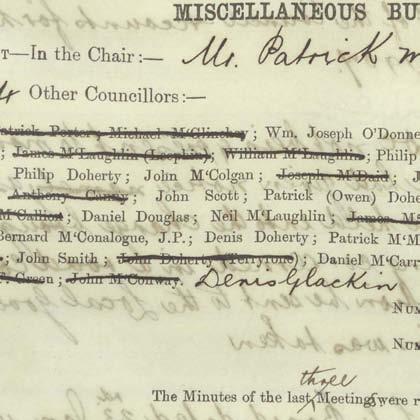 MISCELLANEOUS BU
T—In the Chair:— Mr. Patrick M
Other Councillors:—
atrick Porter; Michael M'Clinchey; Wm. Joseph O'Donne
; James M'Laughlin (Leophin); William M'Laughlin; Philip
Philip Doherty; John M'Colgan; Joseph M'Daid; J
Anthony Canny; John Scott; Patrick (Owen) Dohe
M'Callion; Daniel Douglas; Neil M'Laughlin; James M'
Bernard M'Conalogue, J.P.; Denis Doherty; Patrick M'M
; John Smith; John Doherty (Terryrone); Daniel M'Carr
P. Green; John M'Conway. Denis Glackin
NUM
NUM
three
The Minutes of the last Meetings were r